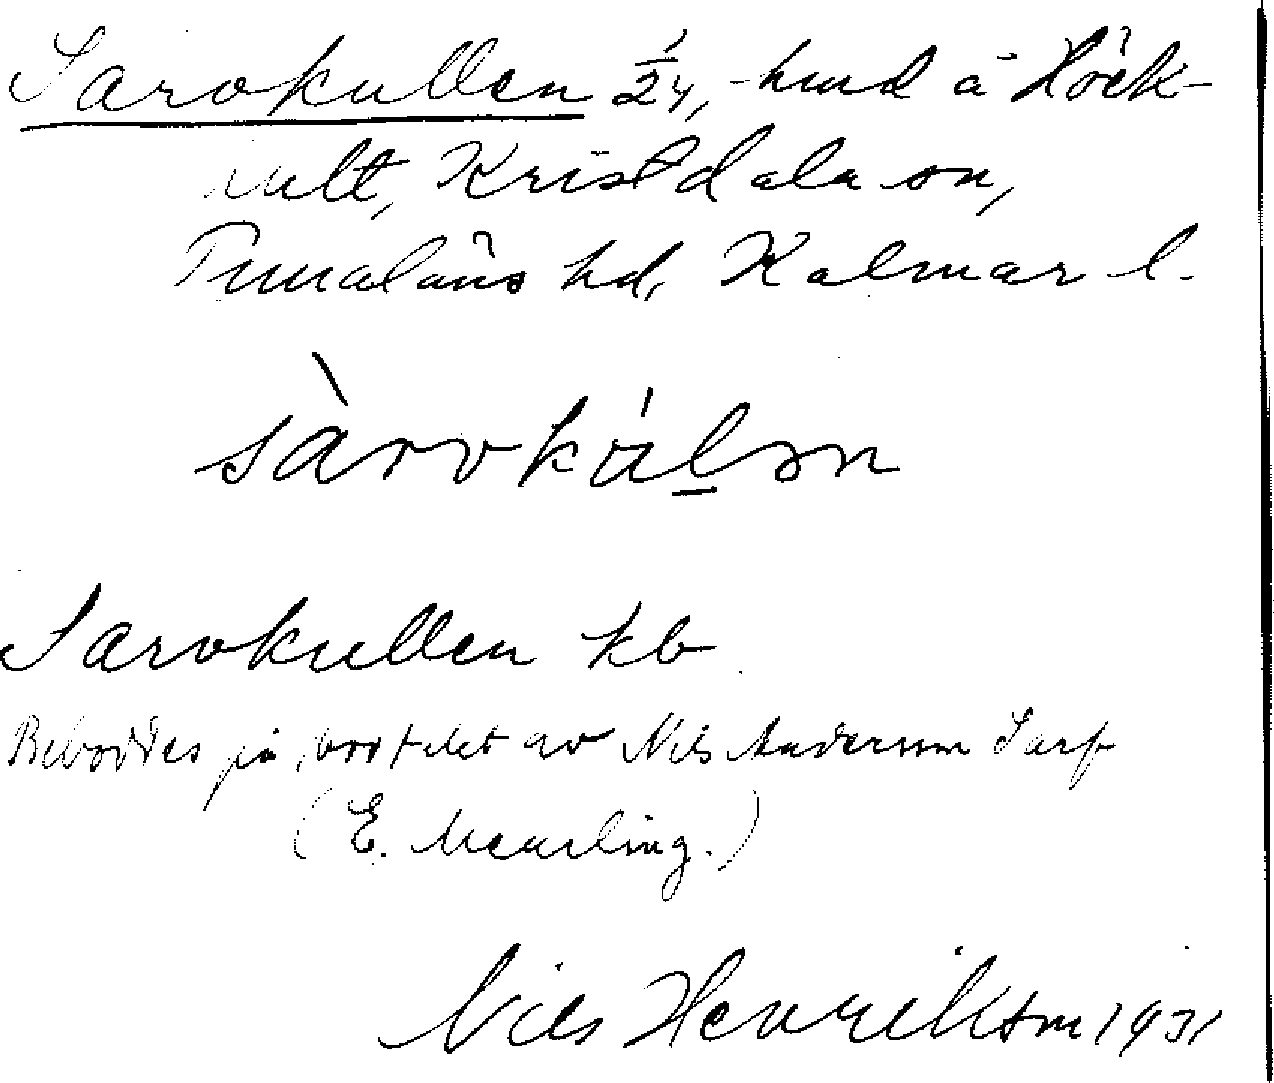 Sarvkullen 1/24, hmd å Höck-
hult, Kristdala sn,
Tunaläns hd, Kalmar l.
sàrvkúlən
Sarvkullen kb
Beboddes på 1700 talet av Nils Andersson Sarf
(E. Meurling.)
Nils Henriksson 1931